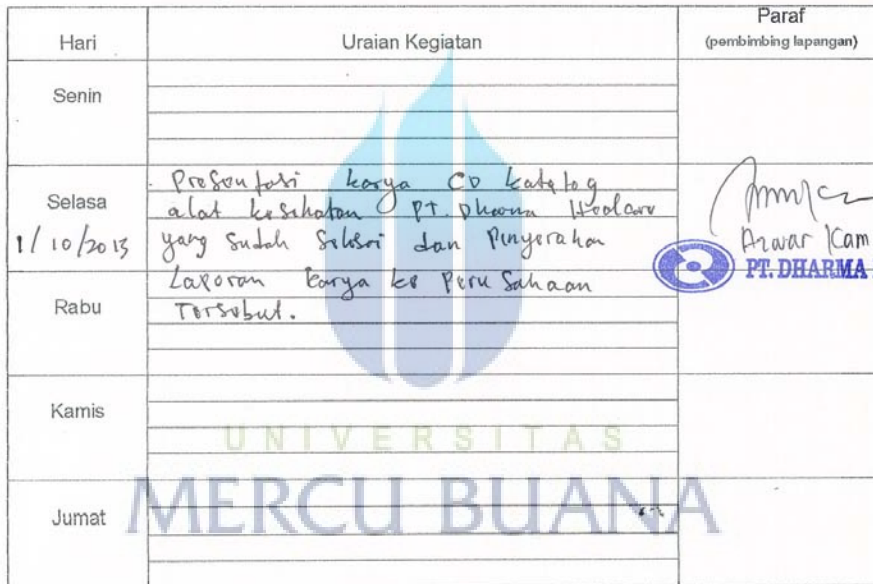 Hari
Uraian Kegiatan
Paraf
(pembimbing lapangan)
Senin
Selasa
1/10/2013
Presentasi karya CD katalog
alat kesehatan PT. Dharma Healcare
yang sudah selesai dan Penyerahan
Laporan karya ke Perusahaan
Tersebut.
Azwar Kam
PT. DHARMA
Rabu
Kamis
Jumat
UNIVERSITAS
MERCU BUANA